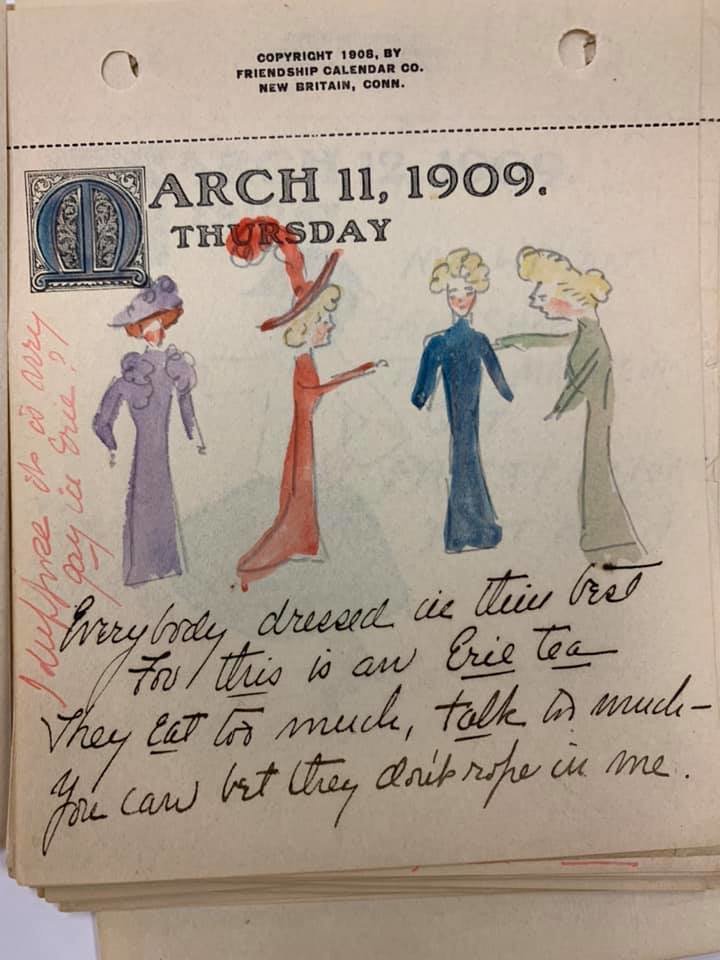 COPYRIGHT 1908, BY
FRIENDSHIP CALENDAR CO.
NEW BRITAIN, CONN.
MARCH 11, 1909.
THURSDAY
I suppose its is very
gay in Erie?
Everybody dressed in their best
For this is an Erie tea
They Eat too much, talk too much—
You can bet they don't rope in me.